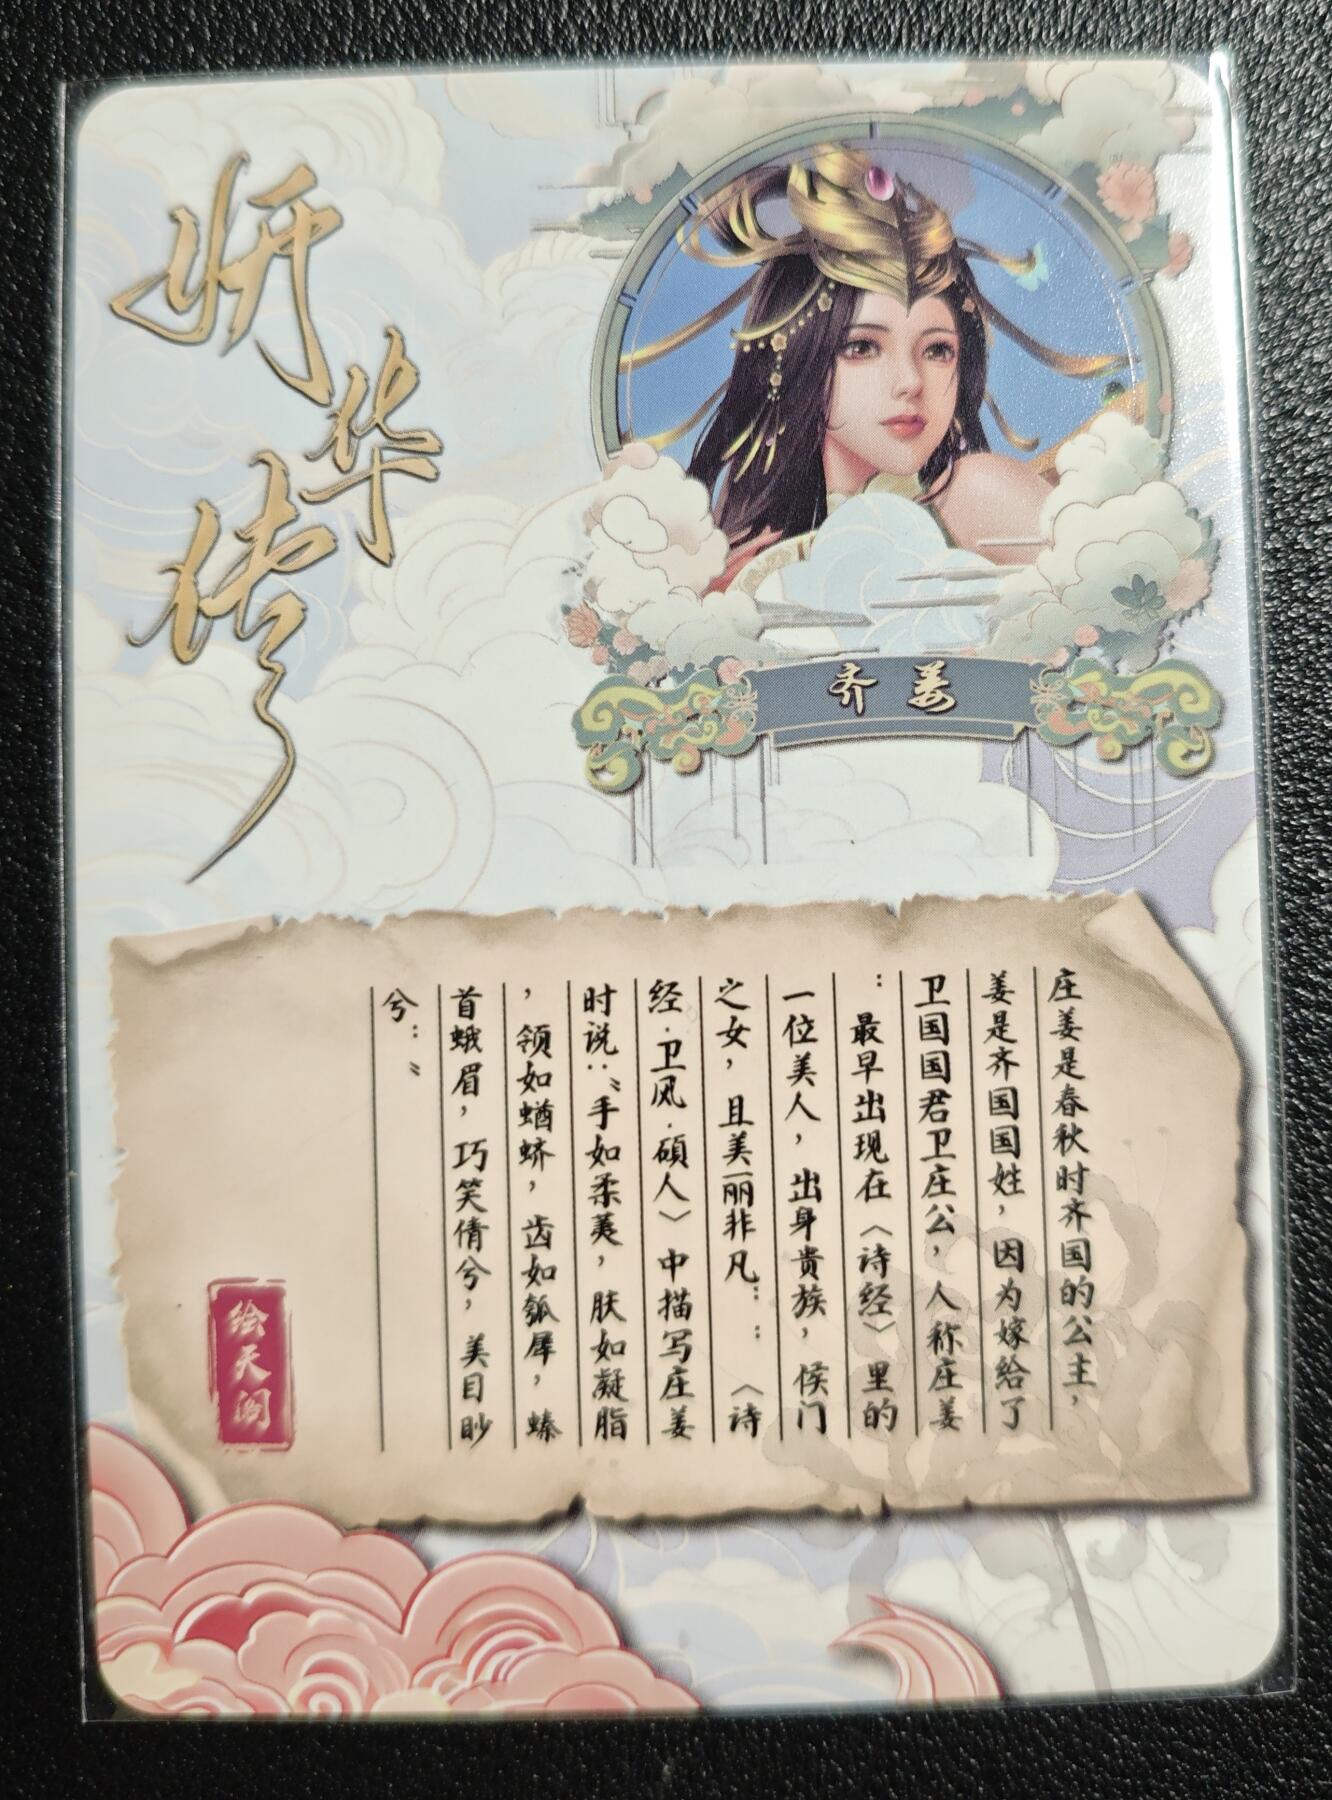 妍华传
齐姜
庄姜是春秋时齐国的公主，
姜是齐国国姓，因为嫁给了
卫国国君卫庄公，人称庄姜
：最早出现在〈诗经〉里的
一位美人，出身贵族，侯门
之女，且美丽非凡：：〈诗
经·卫风·硕人〉中描写庄姜
时说：〝手如柔荑，肤如凝脂
，领如蝤蛴，齿如瓠犀，螓
首蛾眉，巧笑倩兮，美目眇
兮：〞
绘天阁